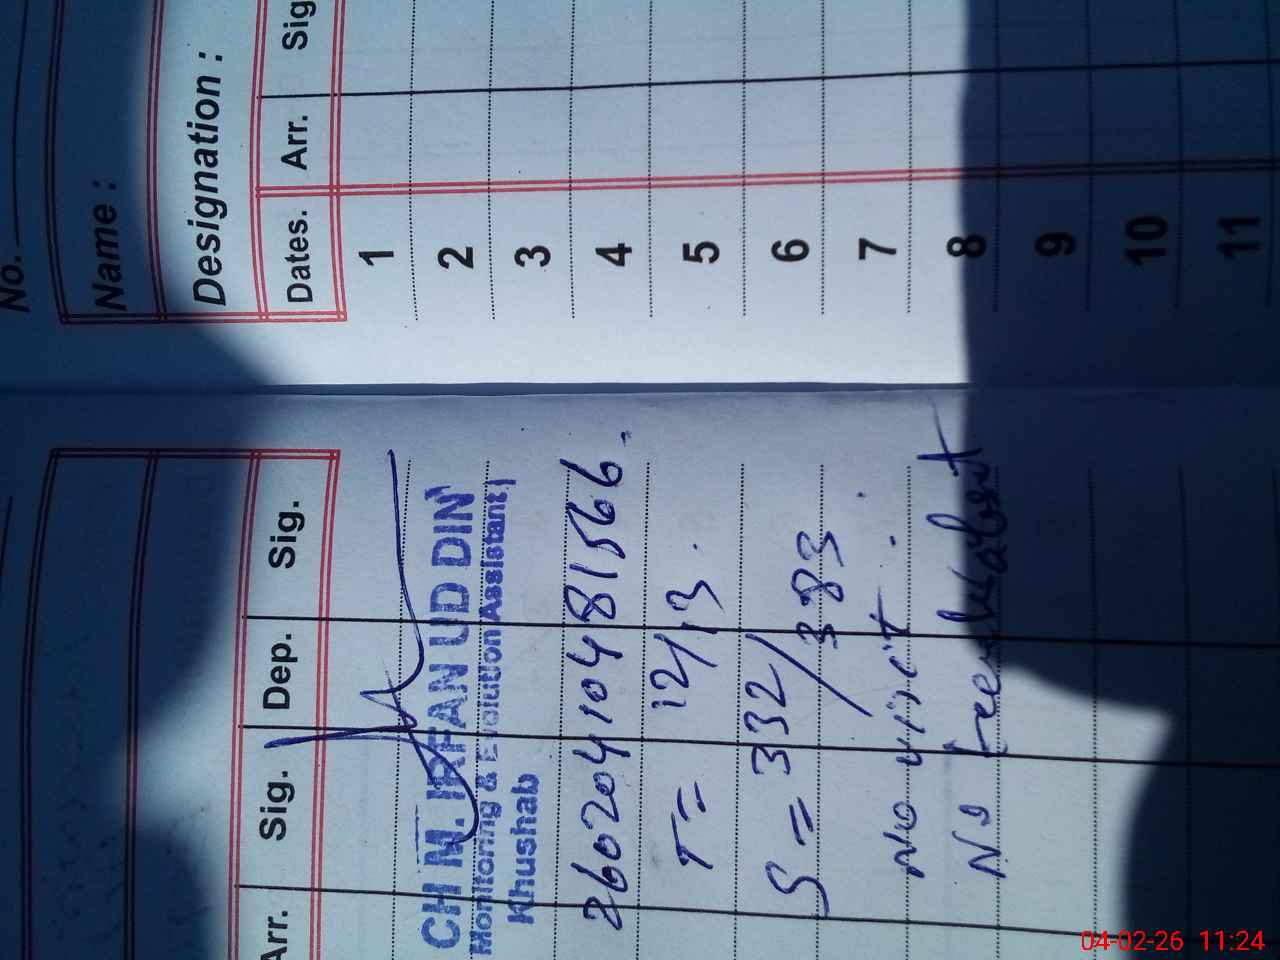 Arr. Sig. Dep. Sig.
CH M. IRFAN UD DIN
Monitoring & Evolution Assistant
Khushab
26020410481566.
T = 12/13.
S = 332/383
No visit.
No absent
No.
Name :
Designation :
Dates. Arr. Sig
1
2
3
4
5
6
7
8
9
10
11
04-02-26 11:24